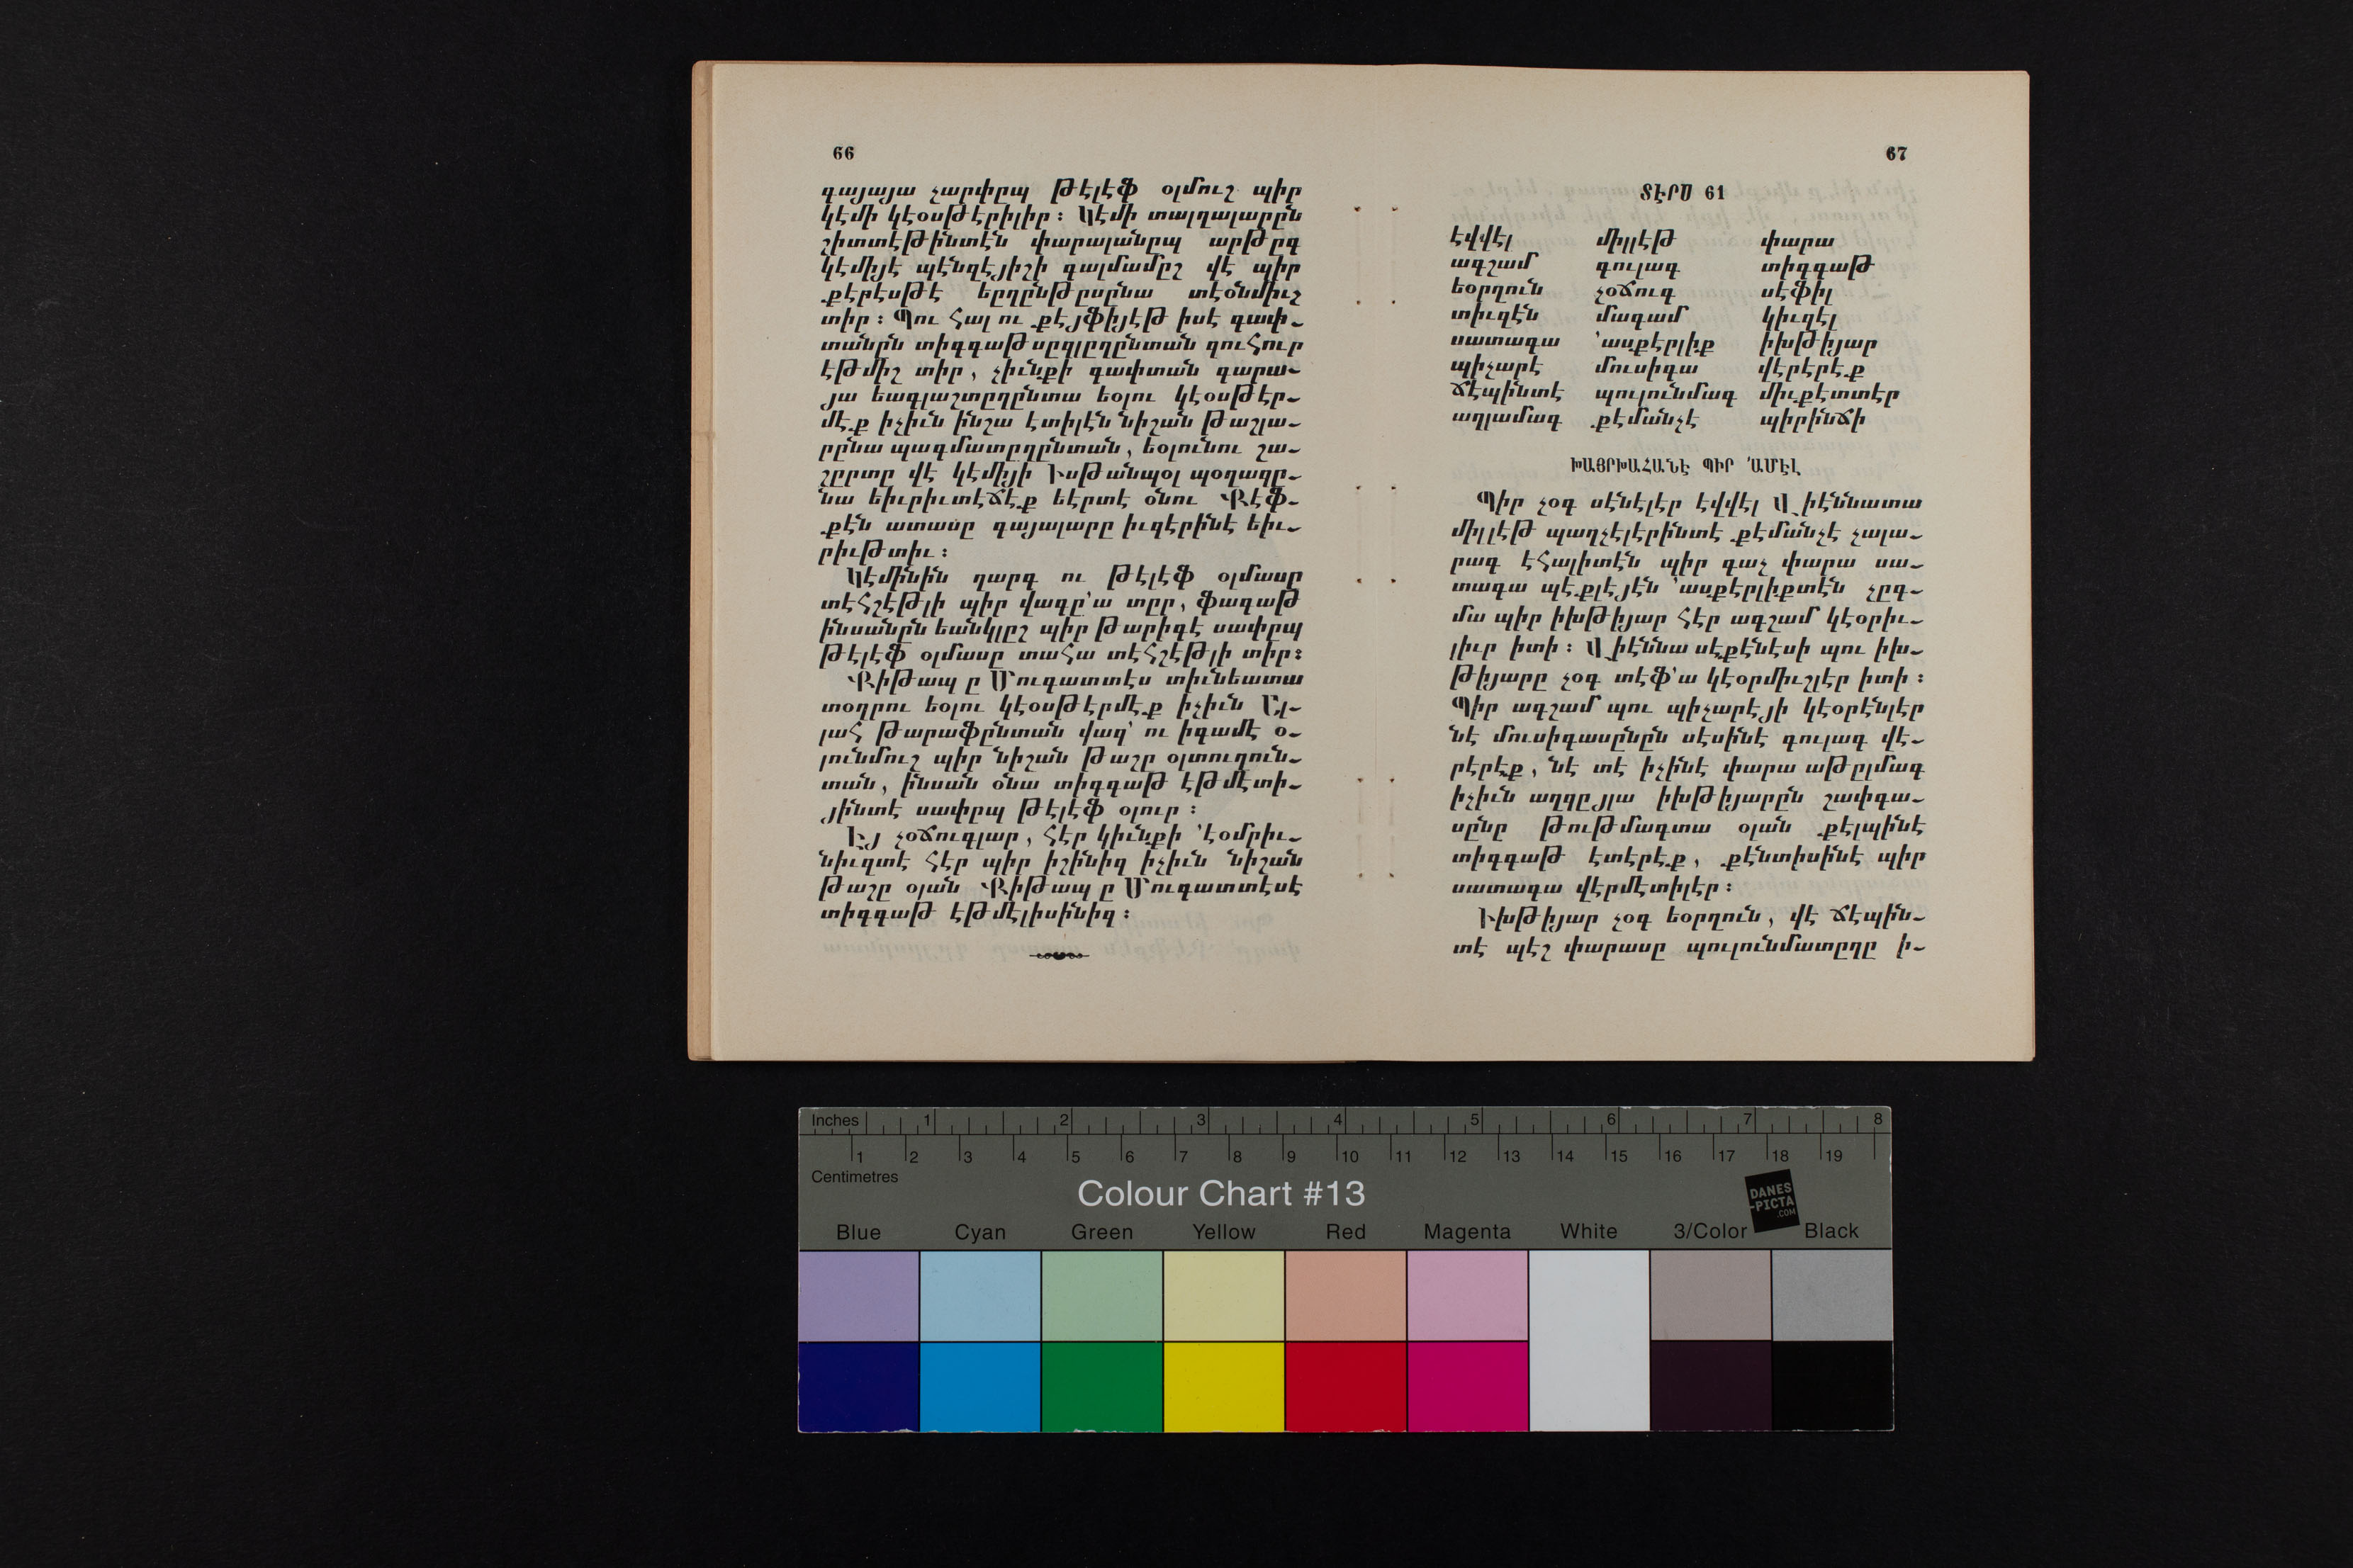 66
գայայա չարփըպ թէլէֆ օլմուշ պիր
կէմի կէօսթէրիլիր։ Կէմի տալղալարըն
շիտտէթինտէն փարալանըպ արթըգ
կէմիյէ պէնզէյիշի գալմամըշ վէ պիր
քէրէսթէ եըղընթըսընա տէօնմիւշ
տիր։ Պու հալ ու քէյֆիյէթ իսէ գափ֊
տանըն տիգգաթսըզլըղընտան զուհուր
էթմիշ տիր, չիւնքի գափտան գարա֊
յա եագլաշտըղընտա եօլու կէօսթէր֊
մէք իչիւն ինշա էտիլէն նիշան թաշլա֊
րընա պագմատըղընտան, եօլունու շա֊
շըրտը վէ կէմիյի Իսթանպօլ պօղազը֊
նա եիւրիւտէճէք եէրտէ օնու Քէֆ֊
քէն ատասը գայալարը իւզէրինէ եիւ֊
րիւթտիւ։
Կէմինին ղարգ ու թէլէֆ օլմասը
տէհշէթլի պիր վագը՚ա տըր, ֆագաթ
ինսանըն եանկլըշ պիր թարիգէ սափըպ
թէլէֆ օլմասը տահա տէհշէթլի տիր։
Քիթապ ը Մուգատտէս տիւնեատա
տօղրու եօլու կէօսթէրմէք իչիւն Ալ֊
լահ թարաֆընտան վազ՚ ու իգամէ օ֊
լունմուշ պիր նիշան թաշը օլտուղուն֊
տան, ինսան օնա տիգգաթ էթմէտի֊
յինտէ սափըպ թէլէֆ օլուր։
Էյ չօճուգլար, հէր կիւնքի ՚էօմրիւ֊
նիւզտէ հէր պիր իշինիզ իչիւն նիշան
թաշը օլան Քիթապ ը Մուգատտէսէ
տիգգաթ էթմէլիսինիզ։
67
ՏԷՐՍ 61
էվվէլ միլլէթ փարա
ագշամ գուլագ տիգգաթ
եօրղուն չօճուգ սէֆիլ
տիւզէն մագամ կիւզէլ
սատագա ՚ասքէրլիք իխթիյար
պիչարէ մուսիգա վէրէրէք
ճէպինտէ պուլունմագ միւքէտտէր
աղլամագ քէմանչէ պիրինճի
ԽԱՅՐԽԱՀԱՆԷ ՊԻՐ ՚ԱՄԷԼ
Պիր չօգ սէնէլէր էվվէլ Վիէննատա
միլլէթ պաղչէլէրինտէ քէմանչէ չալա֊
րագ էհալիտէն պիր գաչ փարա սա֊
տագա պէքլէյէն ՚ասքէրլիքտէն չըգ֊
մա պիր իխթիյար հէր ագշամ կէօրիւ֊
լիւր իտի։ Վիէննա սէքէնէսի պու իխ֊
թիյարը չօգ տէֆ՚ա կէօրմիւշլէր իտի։
Պիր ագշամ պու պիչարէյի կէօրէնլէր
նէ մուսիգասընըն սէսինէ գուլագ վէ֊
րէրէք, նէ տէ իչինէ փարա աթըլմագ
իչիւն աղզըյլա իխթիյարըն շափգա֊
սընը թութմագտա օլան քէլպինէ
տիգգաթ էտէրէք, քէնտիսինէ պիր
սատագա վէրմէտիլէր։
Իխթիյար չօգ եօրղուն, վէ ճէպին֊
տէ պէշ փարասը պուլունմատըղը ի֊
Inches 1 2 3 4 5 6 7 8
1 2 3 4 5 6 7 8 9 10 11 12 13 14 15 16 17 18 19
Centimetres
Colour Chart #13
DANES
-PICTA
.COM
Blue Cyan Green Yellow Red Magenta White 3/Color Black